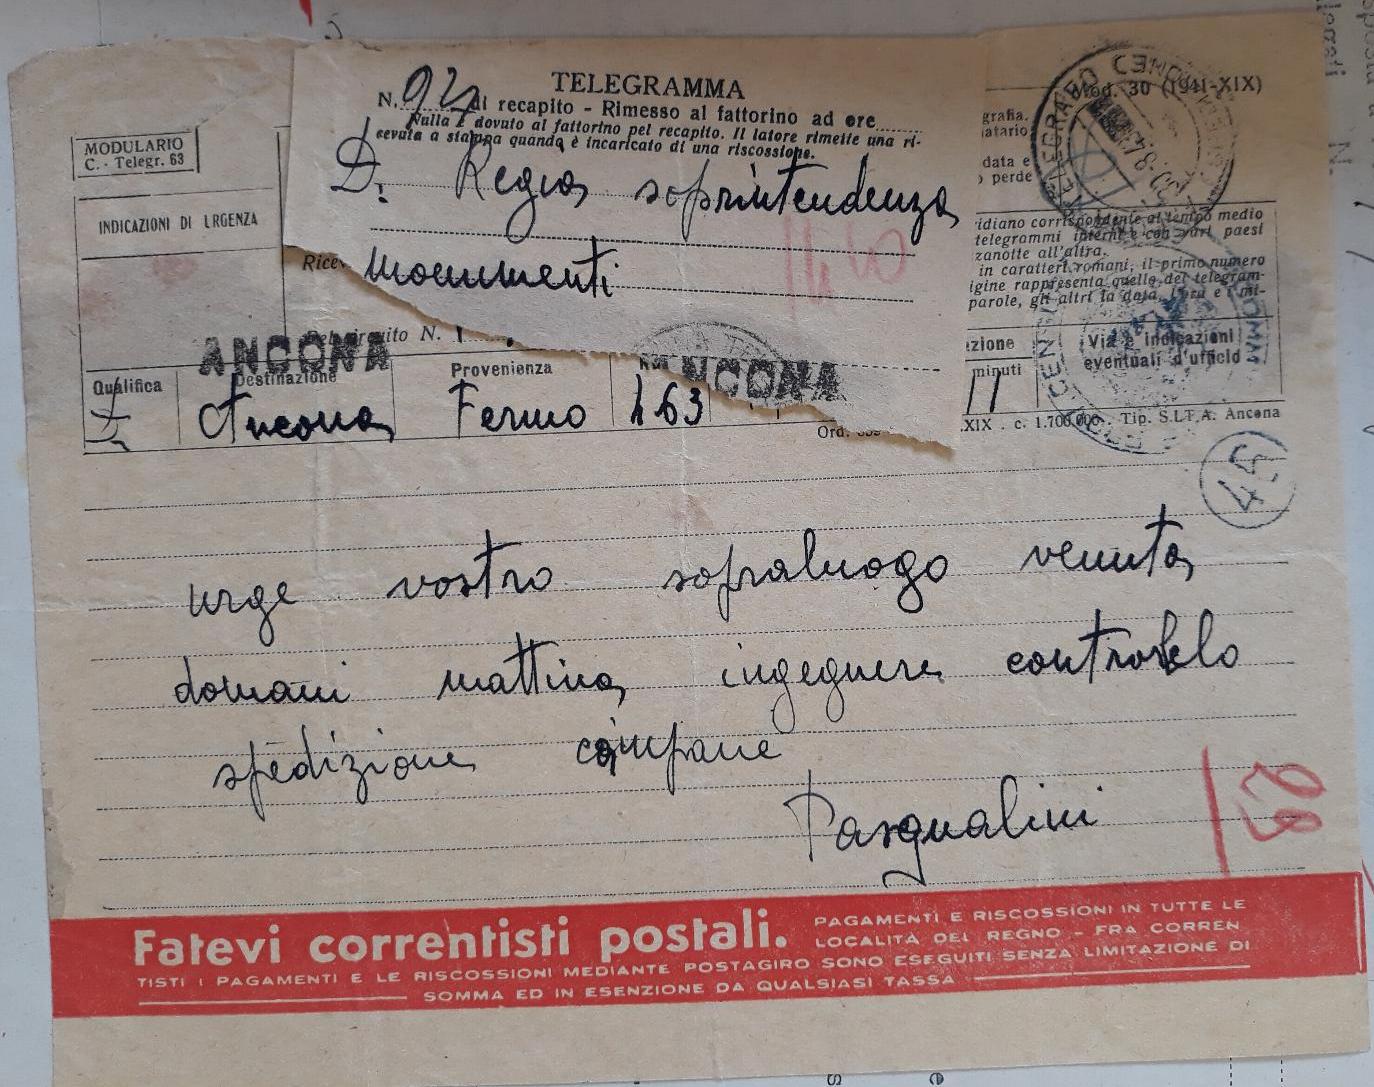 TELEGRAMMA
N. 94 di recapito - Rimesso al fattorino ad ore
Nulla è dovuto al fattorino pel recapito. Il latore rimette una ri-
cevuta a stampa quando è incaricato di una riscossione.
D. Regia soprintendenza
monumenti
Mod. 30 (1941-XIX)
MODULARIO
C. - Telegr. 63
INDICAZIONI DI URGENZA
grafia.
atario
data e
perde
idiano corrispondente al tempo medio
telegrammi interni e con vari paesi
zanotte all'altra.
in caratteri romani, il primo numero
igine rappresenta quello del telegram-
parole, gli altri la data, l'ora e i mi-
TELEGRAFO
N.
ANCONA
ANCONA
Qualifica
Destinazione
Provenienza
azione
minuti
Via e indicazioni
eventuali d'ufficio
Ancona Fermo 463 11
Ord.
XIX . c. 1.700.000 . Tip. S.I.T.A. Ancona
45
urge vostro sopraluogo venuta
domani mattina ingegnere controllo
spedizione campane
Pasqualini
Fatevi correntisti postali. PAGAMENTI E RISCOSSIONI IN TUTTE LE
LOCALITÀ DEL REGNO - FRA CORREN
TISTI I PAGAMENTI E LE RISCOSSIONI MEDIANTE POSTAGIRO SONO ESEGUITI SENZA LIMITAZIONE DI
SOMMA ED IN ESENZIONE DA QUALSIASI TASSA